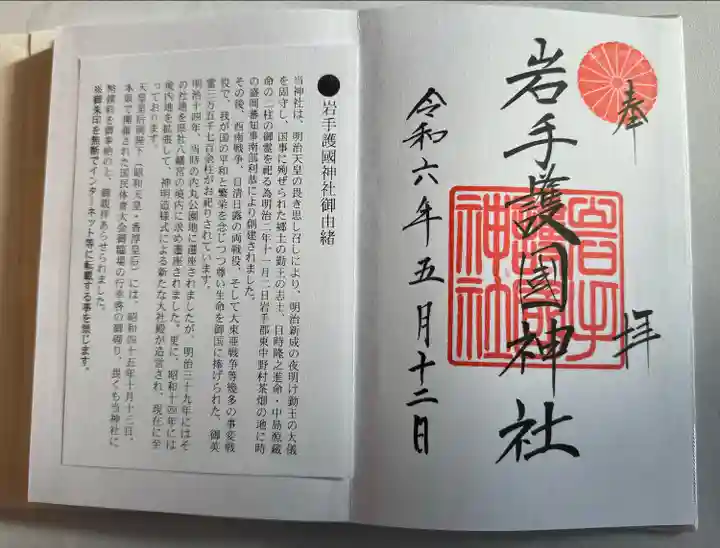 奉拝
岩手護國神社
岩手護國神社
令和六年五月十二日
●岩手護國神社御由緒
当神社は、明治天皇の畏き思し召しにより、明治新成の夜明け勤王の大儀
を固守し、国事に殉ぜられた郷土の勤王の志士、目時隆之進命・中島源蔵
命の二柱の御霊を祀る為明治二年十一月二日岩手郡東中野村茶畑の地に時
の盛岡藩知事南部利恭により創建されました。
その後、西南戦争、日清日露の両戦役、そして大東亜戦争等幾多の事変戦
役で、我が国の平和と繁栄を念じつつ尊い生命を御国に捧げられた、御英
霊三万五千七百余柱がお祀りされています。
明治十四年、当時の内丸公園地に遷座されましたが、明治三十九年にはそ
の社地を県社八幡宮の境内に求め遷座されました。更に、昭和十四年には
境内地を拡張して、神明造様式による新たな大社殿が造営され、現在に至
っております。
天皇皇后両陛下（昭和天皇・香淳皇后）には、昭和四十五年十月十三日、
本県で開催された国民体育大会御臨場の行幸啓の御砌り、畏くも当神社に
幣饌料を御奉納の上、御親拝あらせられました。
※御朱印を無断でインターネット等に転載する事を禁じます。